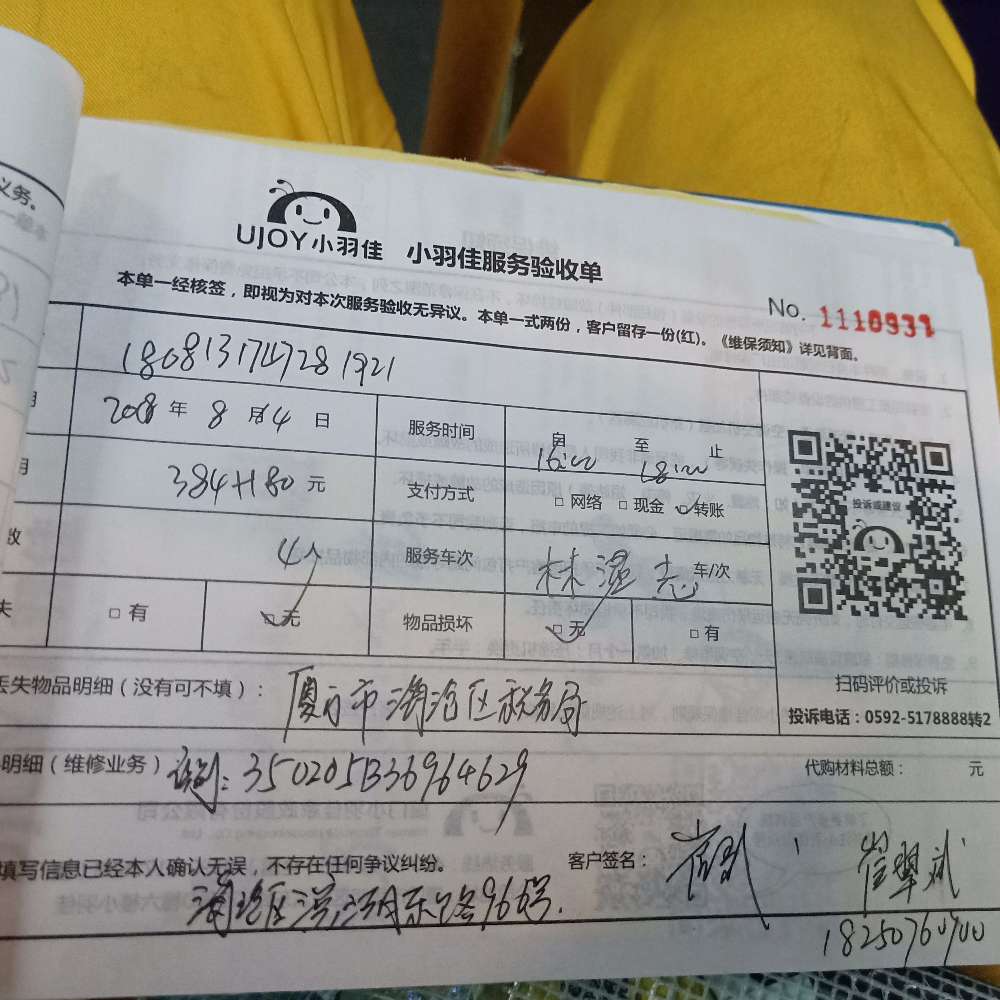 义务。
UJOY小羽佳 小羽佳服务验收单
No. 1110931
本单一经核签，即视为对本次服务验收无异议。本单一式两份，客户留存一份(红)。《维保须知》详见背面。
180813174728 1921
年 8 月 14 日 服务时间 自 16:00 至 18:00 止
384+180 元 支付方式 □ 网络 □ 现金 □ 转账
收 4人 服务车次 车/次
失 □ 有 □ 无 物品损坏 □ 无 □ 有
投诉或建议
扫码评价或投诉
投诉电话：0592-5178888转2
丢失物品明细（没有可不填）： 厦门市海沧区税务局
明细（维修业务） 税号: 3502051336964629
代购材料总额： 元
填写信息已经本人确认无误，不存在任何争议纠纷。 客户签名：
18250760900